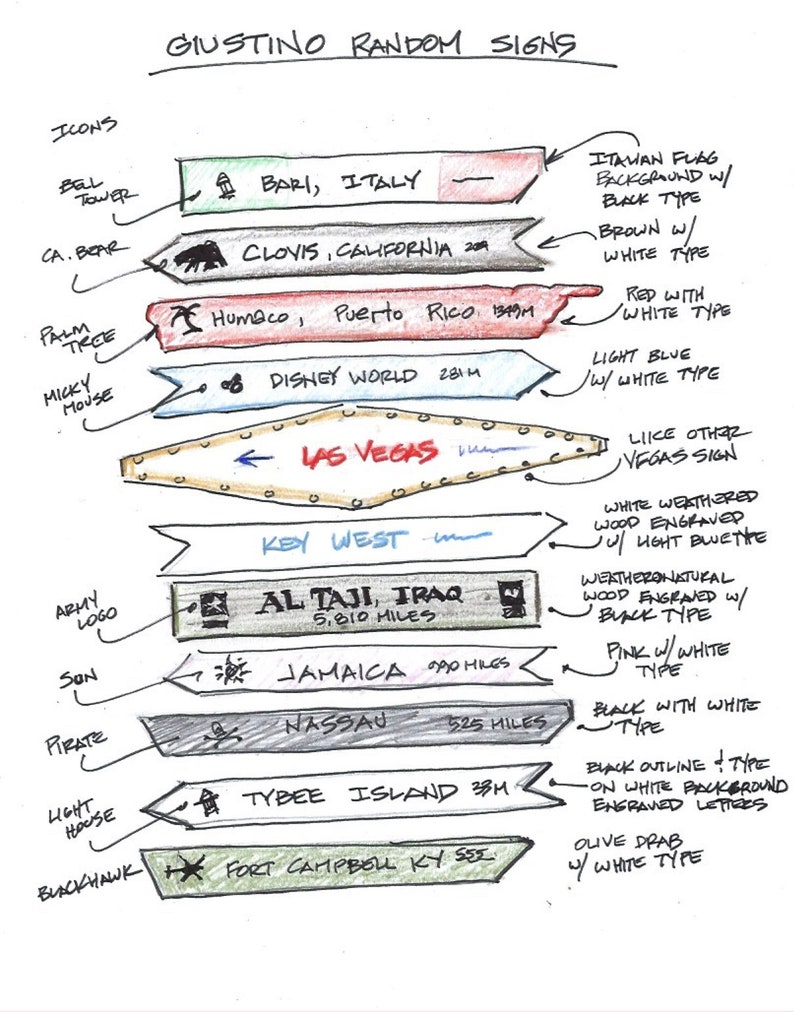 GIUSTINO RANDOM SIGNS
ICONS
BELL
TOWER
BARI, ITALY
ITALIAN FLAG
BACKGROUND W/
BLACK TYPE
CA. BEAR
CLOVIS, CALIFORNIA
BROWN W/
WHITE TYPE
PALM
TREE
Humaco, Puerto Rico 1349M
RED WITH
WHITE TYPE
MICKY
MOUSE
DISNEY WORLD 281M
LIGHT BLUE
W/ WHITE TYPE
LAS VEGAS
LIICE OTHER
VEGAS SIGN
KEY WEST
WHITE WEATHERED
WOOD ENGRAVED
W/ LIGHT BLUE TYPE
ARMY
LOGO
AL TAJI, IRAQ
5,810 MILES
WEATHERONATURAL
WOOD ENGRAVED W/
BLACK TYPE
SON
JAMAICA 990 MILES
PINK W/ WHITE
TYPE
PIRATE
NASSAU 525 MILES
BLACK WITH WHITE
TYPE
LIGHT
HOUSE
TYBEE ISLAND 33M
BLACK OUTLINE & TYPE
ON WHITE BACKGROUND
ENGRAVED LETTERS
BLACKHAWK
FORT CAMPBELL KY 555
OLIVE DRAB
W/ WHITE TYPE